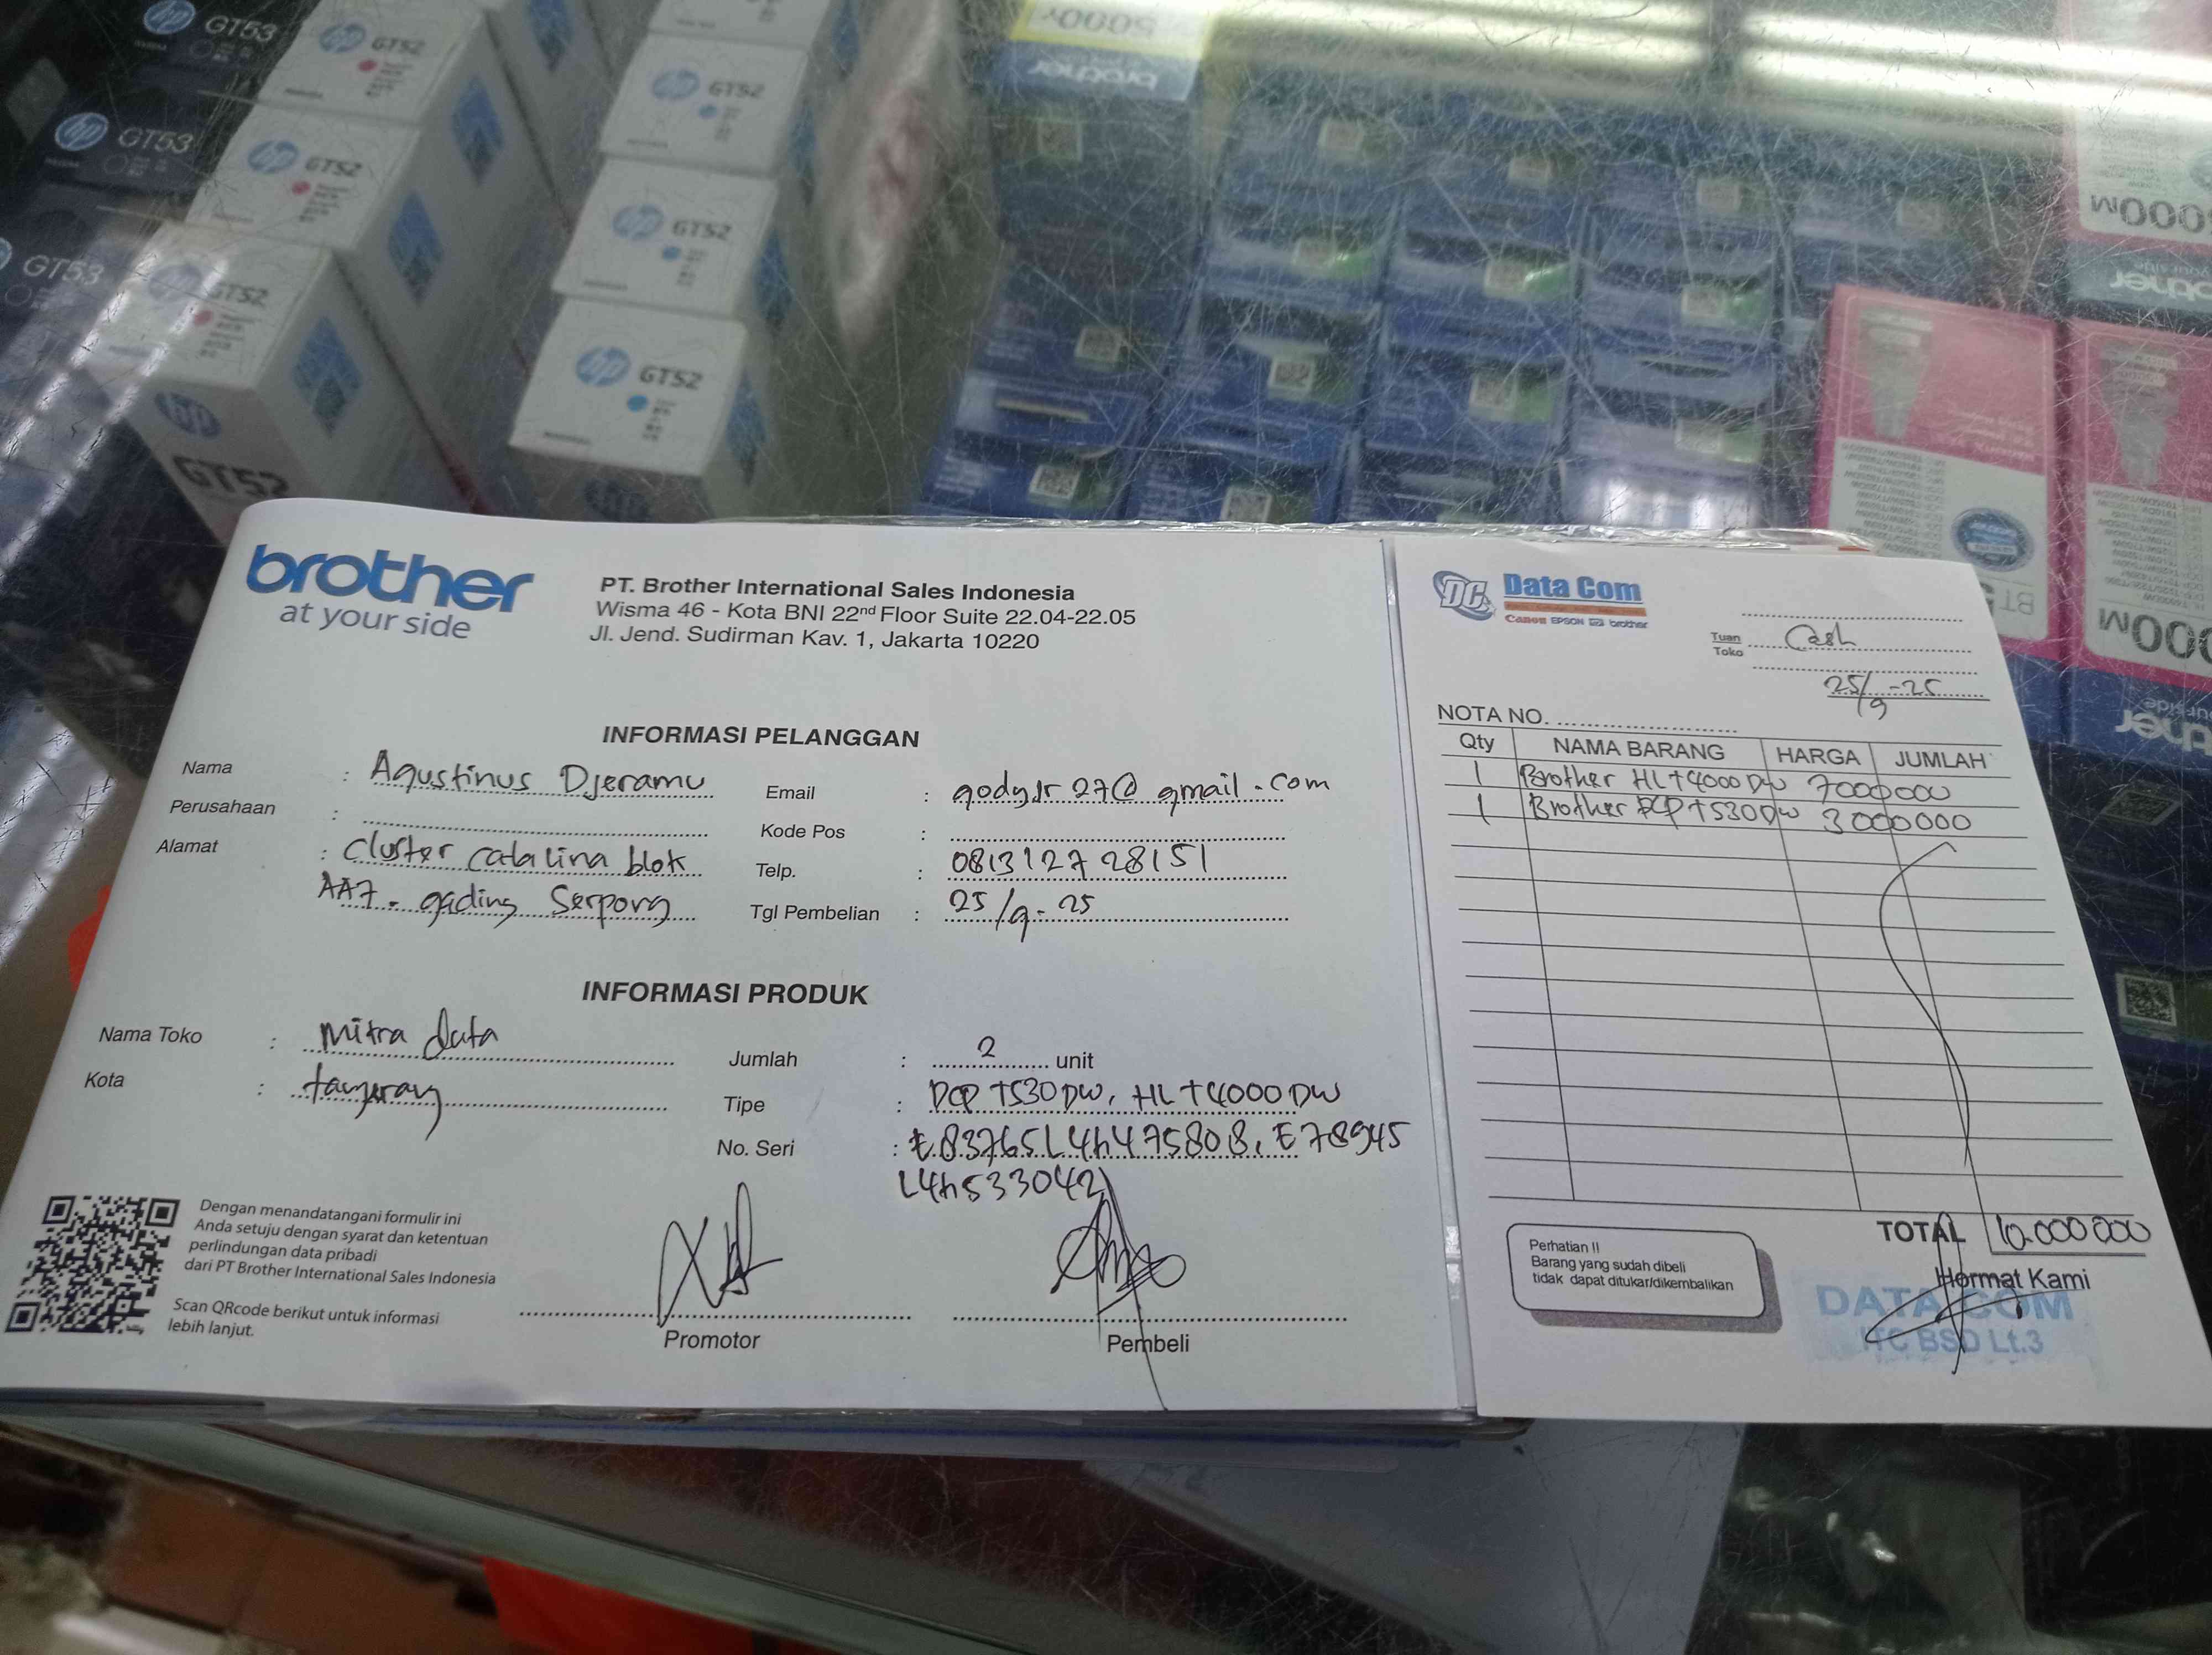 hp GT53
hp GT52
hp GT52
hp GT53
hp GT52
hp GT52
GT53
GT52
hp GT52
hp
GT52
5000Y
brother
brother
at your side
PT. Brother International Sales Indonesia
Wisma 46 - Kota BNI 22nd Floor Suite 22.04-22.05
Jl. Jend. Sudirman Kav. 1, Jakarta 10220
INFORMASI PELANGGAN
Nama : Agustinus Djeramu
Perusahaan :
Alamat : cluster catalina blok
AA7 - gading Serpong
Email : godyjr27@gmail.com
Kode Pos :
Telp. : 081312728151
Tgl Pembelian : 25/9-25
INFORMASI PRODUK
Nama Toko : Mitra data
Kota : tangerang
Jumlah : 2 unit
Tipe : DCP T530DW, HL T4000DW
No. Seri : E83765L4H475808, E78945
L4H533042
Dengan menandatangani formulir ini
Anda setuju dengan syarat dan ketentuan
perlindungan data pribadi
dari PT Brother International Sales Indonesia
Scan QRcode berikut untuk informasi
lebih lanjut.
Promotor
Pembeli
DC Data Com
Canon EPSON hp brother
Tuan
Toko Cash
25/9-25
NOTA NO.
Qty NAMA BARANG HARGA JUMLAH
1 Brother HL T4000DW 7000000
1 Brother DCP T530DW 3000000
TOTAL 10.000000
Perhatian !!
Barang yang sudah dibeli
tidak dapat ditukar/dikembalikan
Hormat Kami
DATA COM
ITC BSD Lt.3